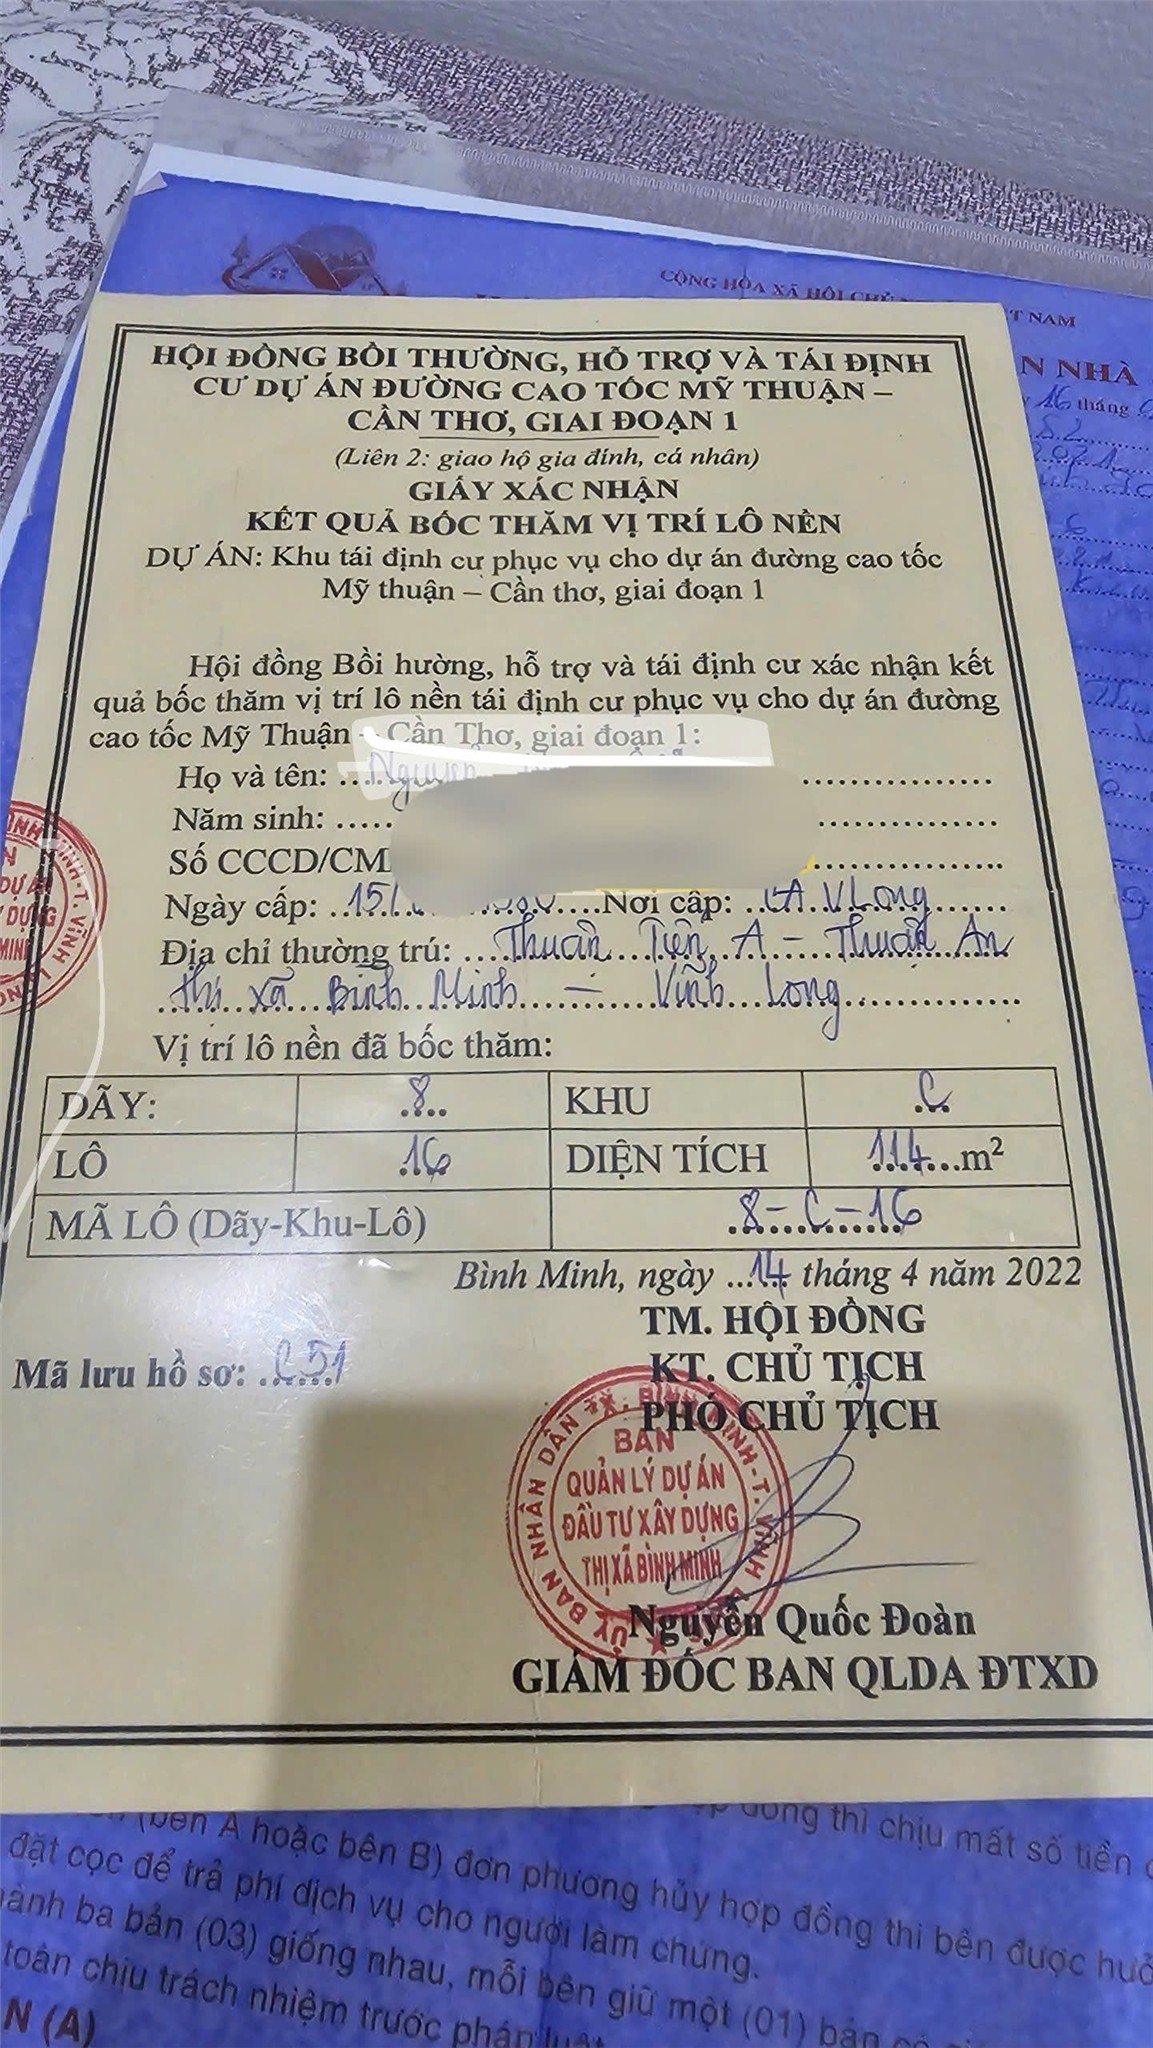 CỘNG HÒA XÃ HỘI CHỦ
T NAM
N NHÀ
16 tháng
HỘI ĐỒNG BỒI THƯỜNG, HỖ TRỢ VÀ TÁI ĐỊNH
CƯ DỰ ÁN ĐƯỜNG CAO TỐC MỸ THUẬN –
CẦN THƠ, GIAI ĐOẠN 1
(Liên 2: giao hộ gia đính, cá nhân)
GIẤY XÁC NHẬN
KẾT QUẢ BỐC THĂM VỊ TRÍ LÔ NỀN
DỰ ÁN: Khu tái định cư phục vụ cho dự án đường cao tốc
Mỹ thuận – Cần thơ, giai đoạn 1
Hội đồng Bồi hường, hỗ trợ và tái định cư xác nhận kết
quả bốc thăm vị trí lô nền tái định cư phục vụ cho dự án đường
cao tốc Mỹ Thuận – Cần Thơ, giai đoạn 1:
Họ và tên: Nguyễn
Năm sinh:
Số CCCD/CM
Ngày cấp: 15/ Nơi cấp: CA VLong
Địa chỉ thường trú: Thuận Tiến A – Thuận An
thị xã Bình Minh – Vĩnh Long
Vị trí lô nền đã bốc thăm:
DÃY: 8 KHU C
LÔ 16 DIỆN TÍCH 114 m²
MÃ LÔ (Dãy-Khu-Lô) 8-C-16
Bình Minh, ngày 14 tháng 4 năm 2022
TM. HỘI ĐỒNG
KT. CHỦ TỊCH
PHÓ CHỦ TỊCH
Mã lưu hồ sơ: C51
ỦY BAN NHÂN DÂN TX. BÌNH MINH - T. VĨNH LONG
BAN
QUẢN LÝ DỰ ÁN
ĐẦU TƯ XÂY DỰNG
THỊ XÃ BÌNH MINH
Nguyễn Quốc Đoàn
GIÁM ĐỐC BAN QLDA ĐTXD
(bên A hoặc bên B) đơn phương hủy hợp đồng thì bên được hưở
đồng thì chịu mất số tiền
đặt cọc để trả phí dịch vụ cho người làm chứng.
ành ba bản (03) giống nhau, mỗi bên giữ một (01) bản có
toàn chịu trách nhiệm trước pháp luật
N (A)